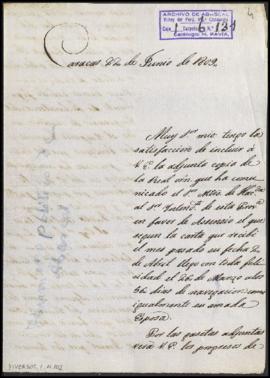 ARCHIVO DE ABASCAL
Caracas 22 de Junio de 1809.
Muy Sr mio tengo la
satisfaccion de incluir à
V.E. la adjunta copia de
la Real orn que ha comu
nicado el Sor
al Sor Intente de esta
en favor de Assensio el que
segun la carta que recibi
el mes pasado su fecha 2
de Abril llego con toda feli
cidad el 26 de Marzo a los
36 dias de navegacion como
igualmente su amada
Esposa.
Por las gacetas adjuntas
verà V.E. los progresos de